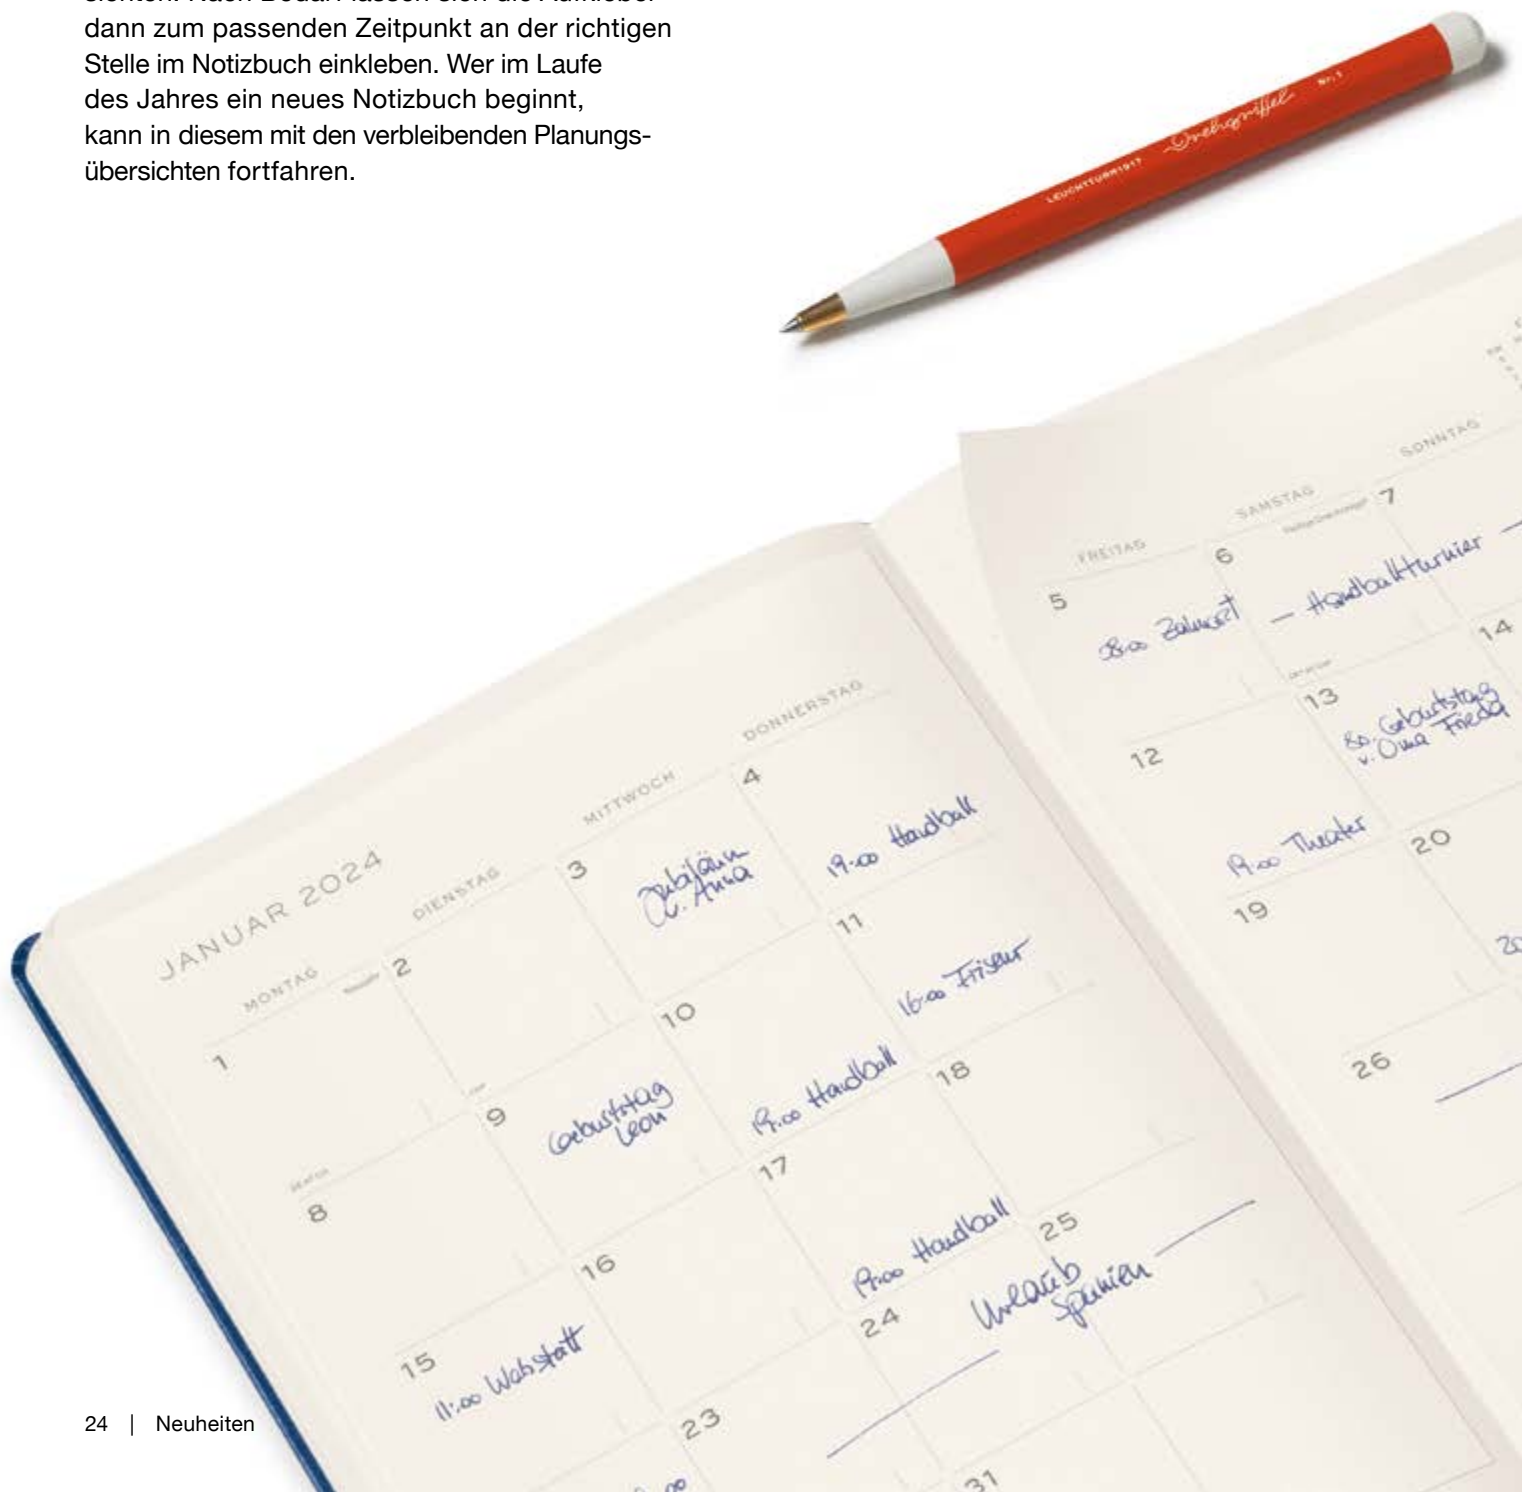 dann zum passenden Zeitpunkt an der richtigen
Stelle im Notizbuch einkleben. Wer im Laufe
des Jahres ein neues Notizbuch beginnt,
kann in diesem mit den verbleibenden Planungs-
übersichten fortfahren.
LEUCHTTURM1917 Drehgriffel Nr. 1
JANUAR 2024
MONTAG DIENSTAG MITTWOCH DONNERSTAG
FREITAG SAMSTAG SONNTAG
1 Neujahr 2 3 4
Jubiläum
v. Anna
19:00 Handball
5 6 7
08:00 Zahnarzt
— Handballturnier —
8 9 10 11
Geburtstag
Leon
19:00 Handball
16:00 Friseur
12 13 14
19:00 Theater
80. Geburtstag
v. Oma Frieda
15 16 17 18
11:00
19:00 Handball
19 20
23 24 25
Urlaub
Spanien
26
31
24 | Neuheiten